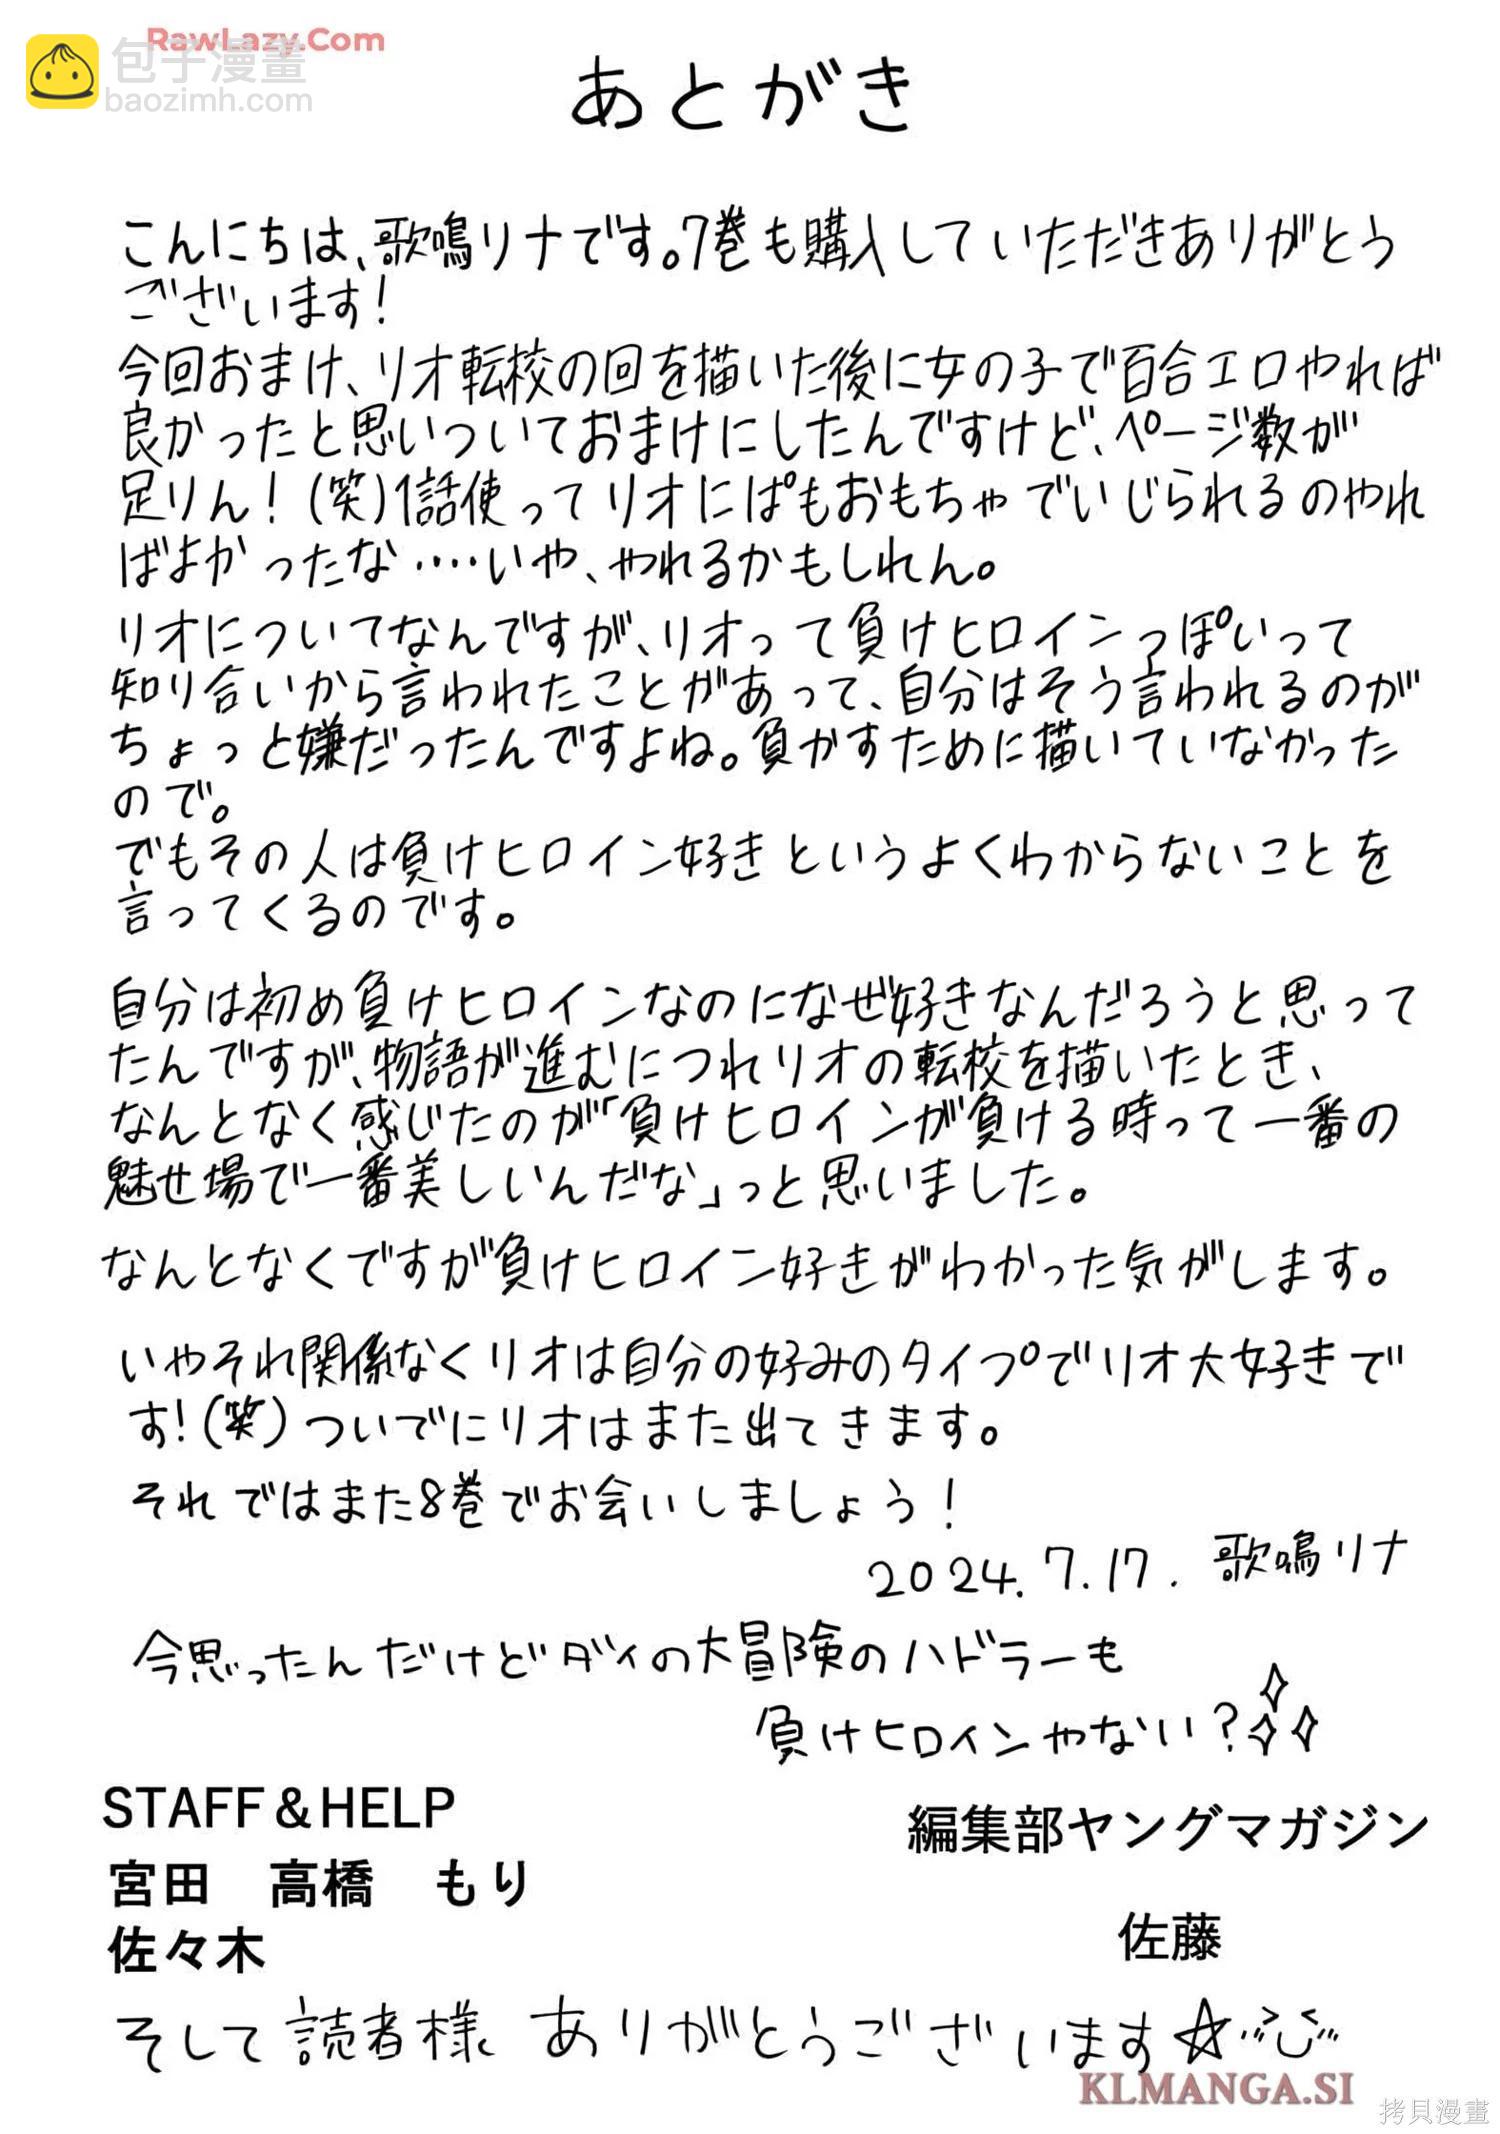 RawLazy.Com
包子漫畫
baozimh.com
あとがき
こんにちは、歌鳴リナです。7巻も購入していただきありがとう
ございます！
今回おまけ、リオ転校の回を描いた後に女の子で百合エロやれば
良かったと思いついておまけにしたんですけど、ページ数が
足りん！(笑)1話使ってリオにぱもおもちゃでいじられるのやれ
ばよかったな‥‥いや、やれるかもしれん。
リオについてなんですが、リオって負けヒロインっぽいって
知り合いから言われたことがあって、自分はそう言われるのが
ちょっと嫌だったんですよね。負かすために描いていなかった
ので。
でもその人は負けヒロイン好きというよくわからないことを
言ってくるのです。
自分は初め負けヒロインなのになぜ好きなんだろうと思って
たんですが、物語が進むにつれリオの転校を描いたとき、
なんとなく感じたのが「負けヒロインが負ける時って一番の
魅せ場で一番美しいんだな」っと思いました。
なんとなくですが負けヒロイン好きがわかった気がします。
いやそれ関係なくリオは自分の好みのタイプでリオ大好きで
す！(笑)ついでにリオはまた出てきます。
それではまた8巻でお会いしましょう！
2024.7.17. 歌鳴リナ
今思ったんだけどダイの大冒険のハドラーも
負けヒロインやない？
STAFF＆HELP
宮田　高橋　もり
佐々木
編集部ヤングマガジン
佐藤
そして読者様 ありがとうございます☆
KLMANGA.SI
拷貝漫畫